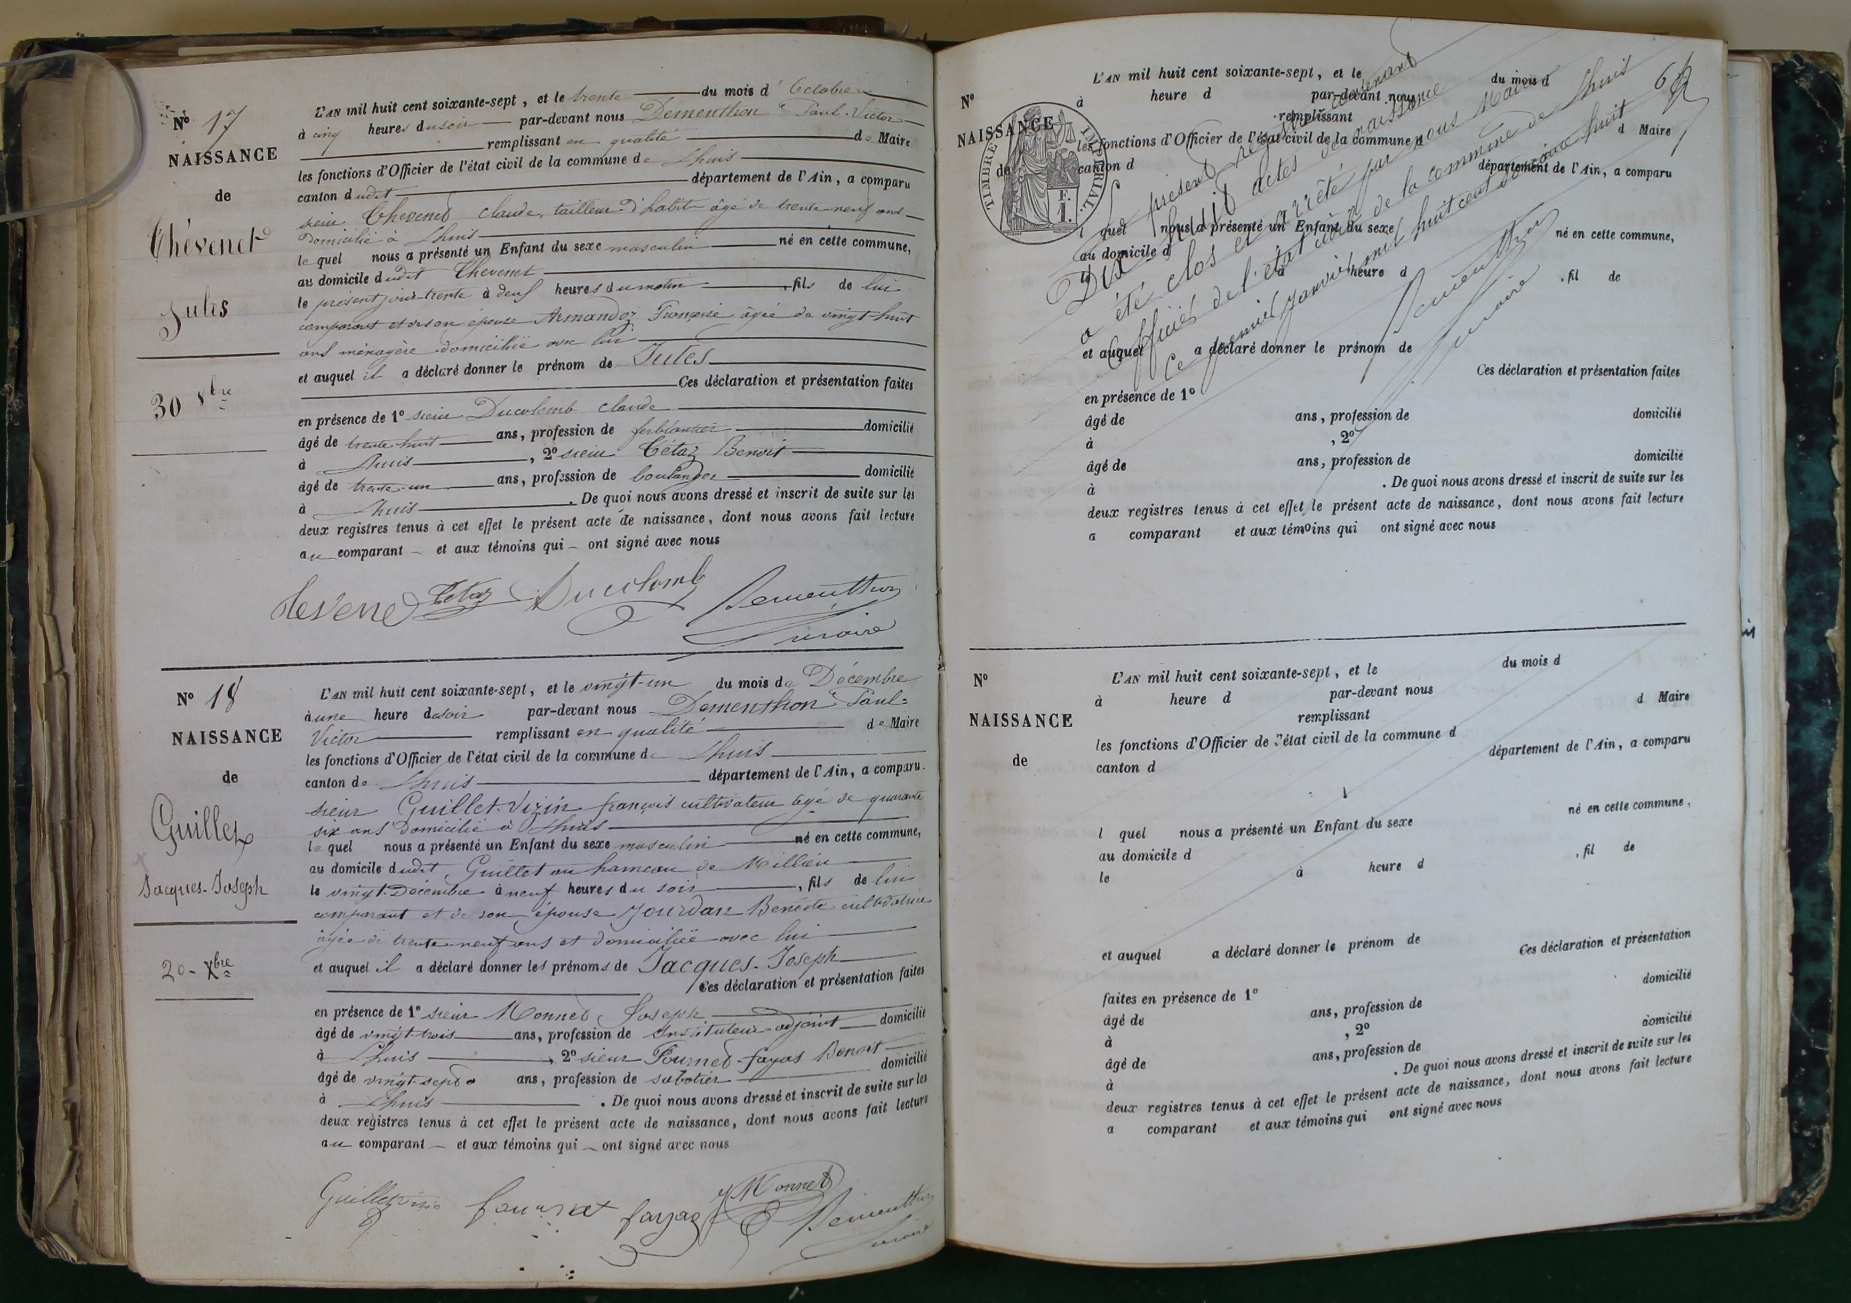 N° 17
NAISSANCE
de
Thévenet
Jules
30 8bre
L'AN mil huit cent soixante-sept, et le trente du mois d'Octobre
à cinq heures du soir par-devant nous Dementhon Paul-Victor
remplissant en qualité de Maire
les fonctions d'Officier de l'état civil de la commune de Lhuis
canton dudit département de l'Ain, a comparu
sieur Thevenet claude, tailleur d'habits âgé de trente neuf ans
Domicilié à Lhuis
lequel nous a présenté un Enfant du sexe masculin né en cette commune,
au domicile dudit Thevenet
le présent jour trente à neuf heures du matin, fils de lui
comparant et de son épouse Armandez Françoise âgée de vingt huit
ans ménagère domiciliée avec lui
et auquel il a déclaré donner le prénom de Jules
Ces déclaration et présentation faites
en présence de 1° sieur Ducolomb claude
âgé de trente huit ans, profession de ferblantier domicilié
à Lhuis, 2° sieur Tétaz Benoit
âgé de trente-un ans, profession de boulanger domicilié
à Lhuis. De quoi nous avons dressé et inscrit de suite sur les
deux registres tenus à cet effet le présent acte de naissance, dont nous avons fait lecture
au comparant et aux témoins qui ont signé avec nous
Tétaz Ducolomb Dementhon
maire
N° 18
NAISSANCE
de
Guillet
Jacques-Joseph
20 - Xbre
L'AN mil huit cent soixante-sept, et le vingt-un du mois de Décembre
à une heure du soir par-devant nous Dementhon Paul-
Victor remplissant en qualité de Maire
les fonctions d'Officier de l'état civil de la commune de Lhuis
canton de Lhuis département de l'Ain, a comparu
sieur Guillet-Vizin françois cultivateur âgé de quarante
six ans Domicilié à Lhuis
lequel nous a présenté un Enfant du sexe masculin né en cette commune,
au domicile dudit Guillet au hameau de Millieu
le vingt Décembre à neuf heures du soir, fils de lui
comparant et de son épouse Jourdan Benoite cultivatrice
âgée de trente-neuf ans et domiciliée avec lui
et auquel il a déclaré donner les prénoms de Jacques-Joseph
Ces déclaration et présentation faites
en présence de 1° sieur Monnet Joseph
âgé de vingt-trois ans, profession de Instituteur adjoint domicilié
à Lhuis, 2° sieur Fournet-fayas Benoit
âgé de vingt-sept ans, profession de sabotier domicilié
à Lhuis. De quoi nous avons dressé et inscrit de suite sur les
deux registres tenus à cet effet le présent acte de naissance, dont nous avons fait lecture
au comparant et aux témoins qui ont signé avec nous
Guillet vizin Monnet
Dementhon
maire
N°
NAISSANCE
de
TIMBRE IMPERIAL.
F.
1.
L'AN mil huit cent soixante-sept, et le du mois d
à heure d par-devant nous
remplissant d Maire
les fonctions d'Officier de l'état civil de la commune d
canton d département de l'Ain, a comparu
l quel nous a présenté un Enfant du sexe né en cette commune,
au domicile d
le à heure d , fil de
et auquel a déclaré donner le prénom de
Ces déclaration et présentation faites
en présence de 1°
âgé de ans, profession de domicilié
à , 2°
âgé de ans, profession de domicilié
à . De quoi nous avons dressé et inscrit de suite sur les
deux registres tenus à cet effet le présent acte de naissance, dont nous avons fait lecture
a comparant et aux témoins qui ont signé avec nous
Le présent registre contenant
Dix huit actes de naissance
a été clos et arrêté par nous Maire
Officier de l'état civil de la commune de Lhuis
Ce premier janvier mil huit cent soixante huit
Dementhon
maire
N°
NAISSANCE
de
L'AN mil huit cent soixante-sept, et le du mois d
à heure d par-devant nous
remplissant d Maire
les fonctions d'Officier de l'état civil de la commune d
canton d département de l'Ain, a comparu
l quel nous a présenté un Enfant du sexe né en cette commune,
au domicile d
le à heure d , fil de
et auquel a déclaré donner le prénom de
Ces déclaration et présentation
faites en présence de 1°
âgé de ans, profession de domicilié
à , 2°
âgé de ans, profession de domicilié
à . De quoi nous avons dressé et inscrit de suite sur les
deux registres tenus à cet effet le présent acte de naissance, dont nous avons fait lecture
a comparant et aux témoins qui ont signé avec nous